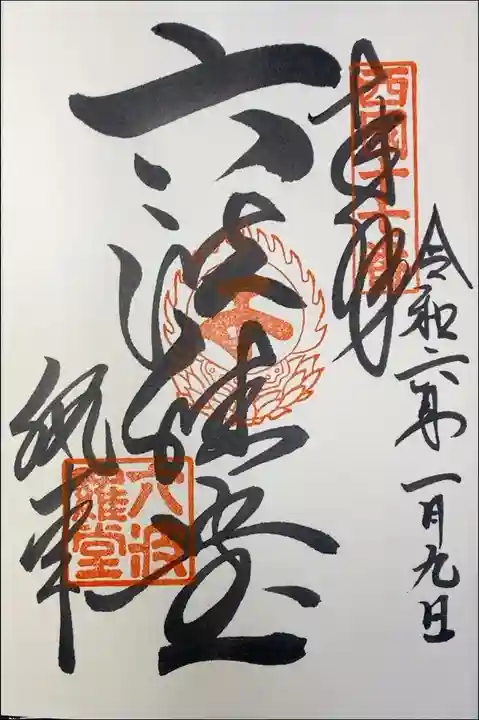 令和六年一月九日
奉拝
西国十七番
六波羅堂
六波
羅堂